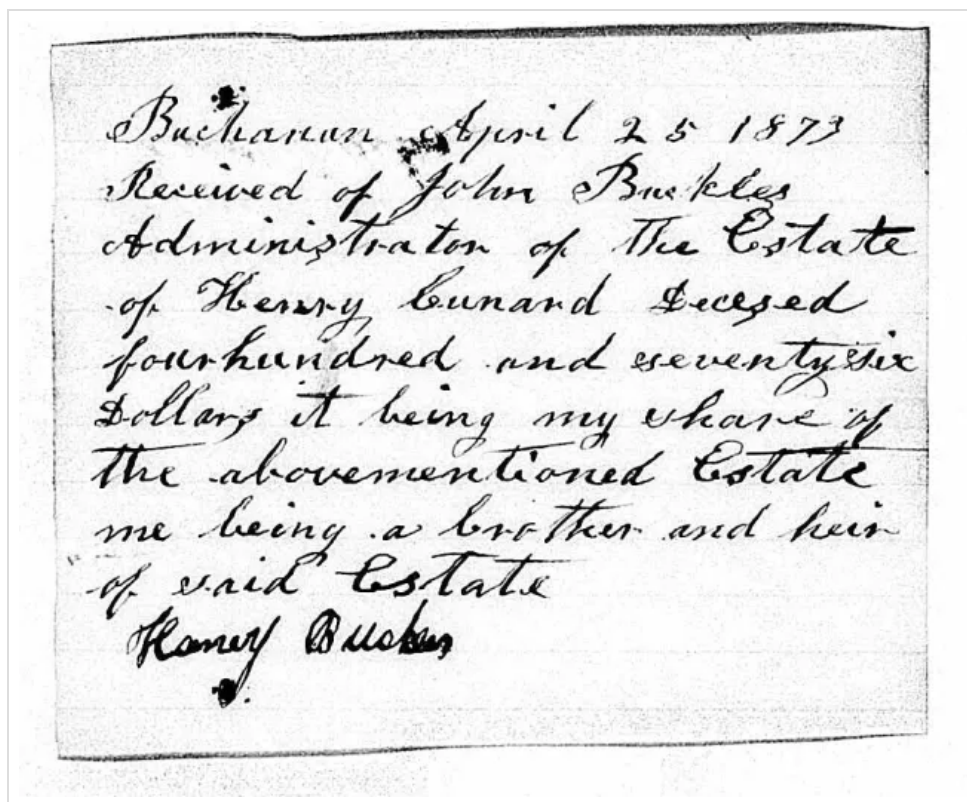 Buchanan April 25 1873
Received of John Buckles
Administrator of the Estate
of Henry Cunard Decesed
fourhundred and seventysix
Dollars it being my share of
the abovementioned Estate
me being a brother and heir
of said Estate